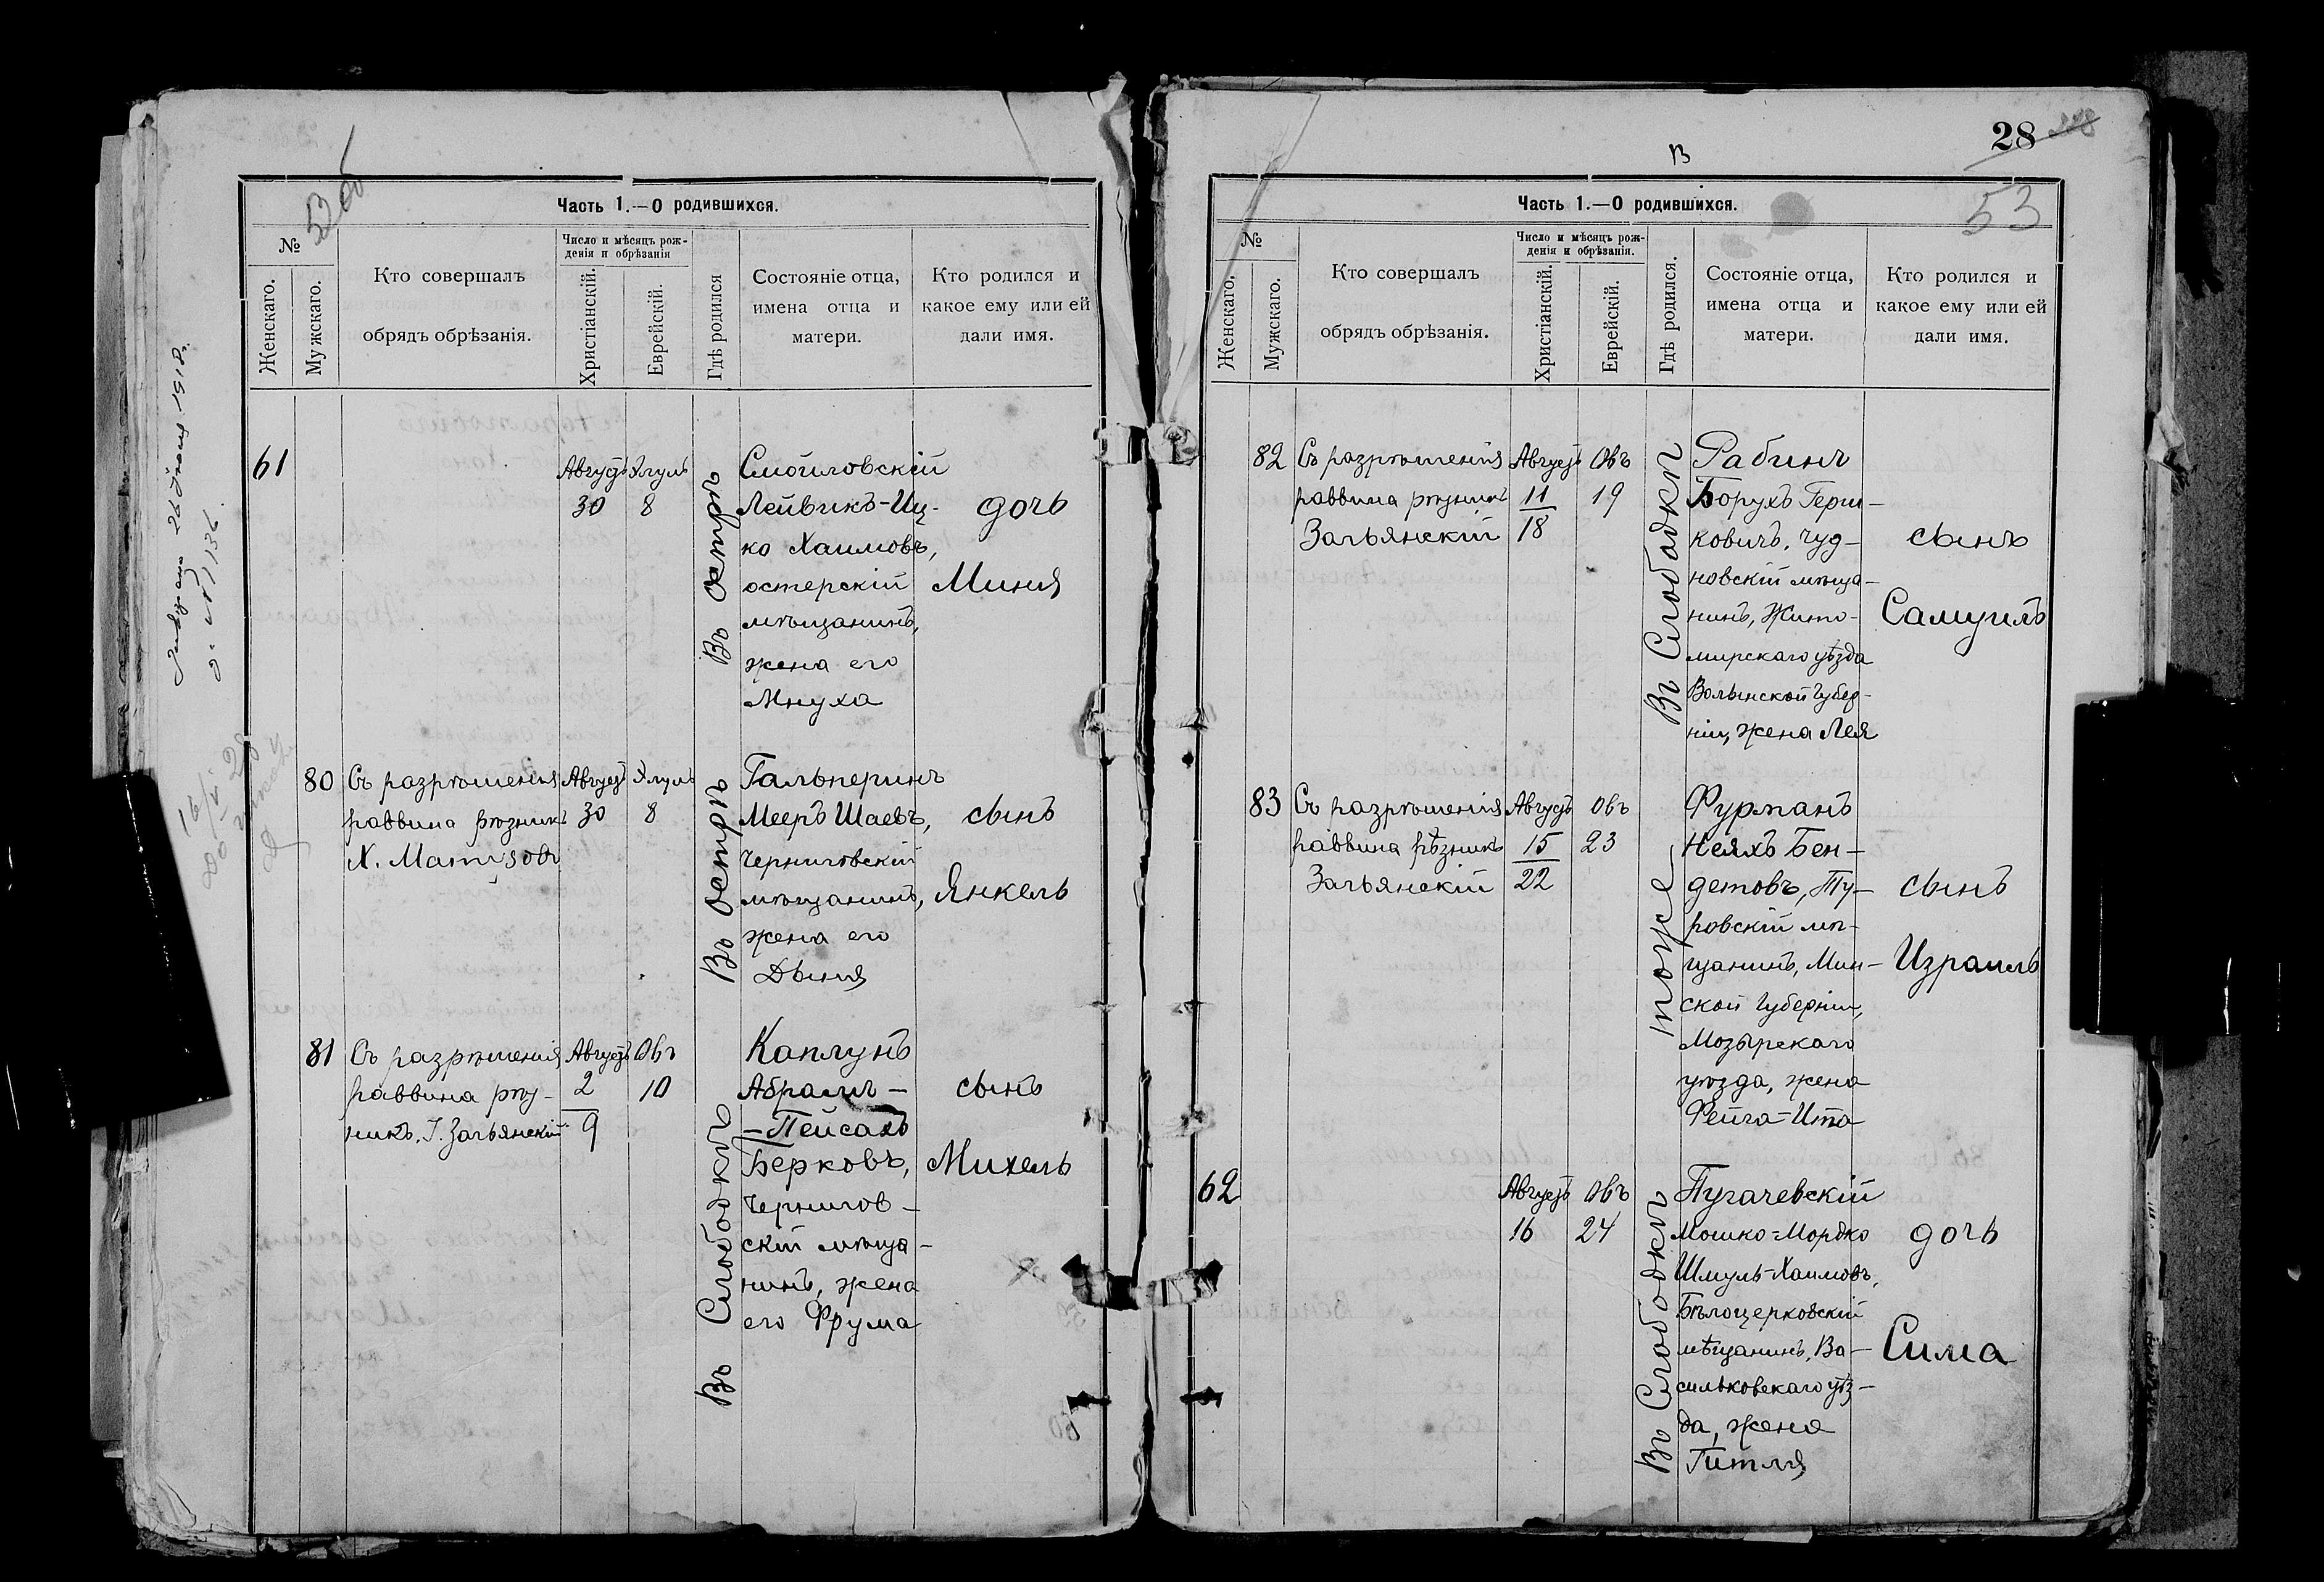 Часть 1.—О родившихся.
№
Женскаго.
Мужскаго.
Кто совершалъ
обрядъ обрѣзанія.
Число и мѣсяцъ рож-
денія и обрѣзанія
Христіанскій.
Еврейскій.
Гдѣ родился
Состояніе отца,
имена отца и
матери.
Кто родился и
какое ему или ей
дали имя.
61
Августъ
30
Элулъ
8
Въ Острѣ
Смоиловскій
Лейвикъ-Иц-
ко Хаимовъ,
остерскій
мѣщанинъ,
жена его
Мнуха
дочь
Миня
80
Съ разрѣшенія
раввина рѣзникъ
Х. Матузовъ
Августъ
30
Элулъ
8
Въ Острѣ
Гальперинъ
Мееръ Шаевъ,
Черниговскій
мѣщанинъ,
жена его
Двыня
сынъ
Янкель
81
Съ разрѣшенія
раввина рѣз-
никъ, І. Зальянскій
Августъ
2
9
Овъ
10
Въ Слободкѣ
Каплунъ
Абрамъ —
— Пейсахъ
Берковъ,
Чернигов —
скій мѣща —
нинъ, жена
его Фрума
сынъ
Михель
28
В
53
Часть 1.—О родившихся.
№
Женскаго.
Мужскаго.
Кто совершалъ
обрядъ обрѣзанія.
Число и мѣсяцъ рож-
денія и обрѣзанія.
Христіанскій.
Еврейскій.
Гдѣ родился.
Состояніе отца,
имена отца и
матери.
Кто родился и
какое ему или ей
дали имя.
82
Съ разрѣшенія
раввина рѣзникъ
Зальянскій
Августъ
11
18
Овъ
19
Въ Слободкѣ
Рабинъ
Борухъ Герш —
ковичъ, Чуд —
новскій мѣща —
нинъ, Жито -
мирскаго уѣзда
Волынской Губер-
ніи, жена Лея
сынъ
Самуилъ
83
Съ разрѣшенія
раввина рѣзникъ
Зальянскій
Августъ
15
22
Овъ
23
тоже
Фурманъ
Неяхъ Бен —
детовъ, Ту —
ровскій мѣ-
щанинъ, Мин —
ской Губерніи,
Мозырскаго
уѣзда, жена
Фейга=Ита
сынъ
Израиль
62
Августъ
16
Овъ
24
Въ Слободкѣ
Пугачевскій
Мошко=Мордко
Шмуль-Хаимовъ,
Бѣлоцерковскій
мѣщанинъ, Ва —
сильковскаго уѣз —
да, жена
Гитля
дочь
Сима